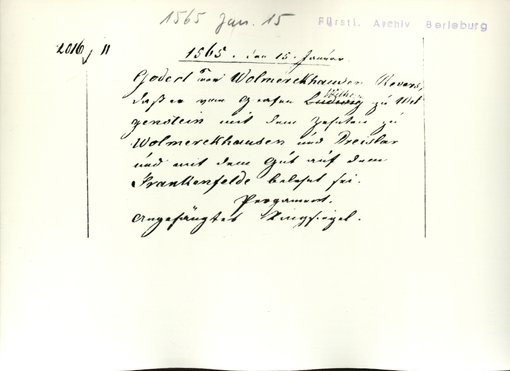 1565 Jan. 15
Fürstl. Archiv Berleburg
2016 11
1565. den 15. Januar.
Godert von Wolmerckhausen Revers,
daß er vom Grafen Ludwig zu Wit
genstein mit dem Zehnten zu
Wolmerckhausen und Dreislar
und mit dem Gut auf dem
Frankenfelde belehnt sei.
Pergament.
Angehängtes Ringsiegel.